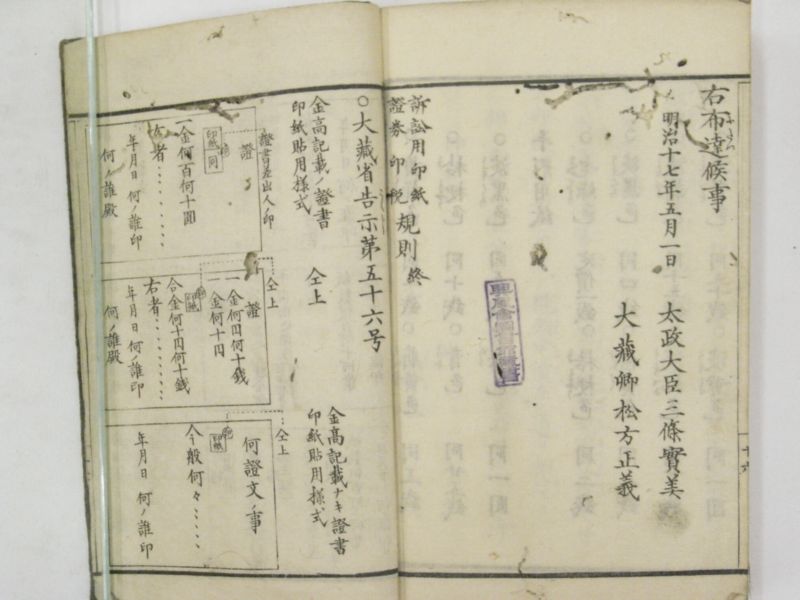 右布達候事
明治十七年五月一日
太政大臣三條實美
大藏卿松方正義
訴訟用印紙
證券印税
規則終
○大藏省告示第五十六号
金高記載ノ證書
印紙貼用様式
仝上
金高記載ナキ證書
印紙貼用様式
證書差出人ノ印
證
印紙
一金何百何十圓
右者
年月日 何ノ誰印
何ノ誰殿
仝上
證
一金何円何十銭
一金何十円
印紙
合金何十円何十銭
右者
年月日 何ノ誰印
何ノ誰殿
仝上
何證文ノ事
印紙
今般何々
年月日 何ノ誰印
十六